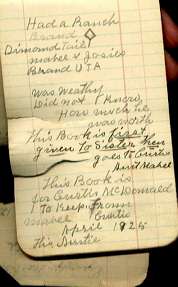 Had a Ranch
Brand ◇
Dimond Tail
mabel & Josies
Brand U T A
was weathy
Did not I Know
How much he
was worth
This Book is first
given to Sister then
goes to Curtis
Aunt Mabel
This Book is
for Curtis McDonald
To Keep from
mabel Curtis
April 1925
His Auntie